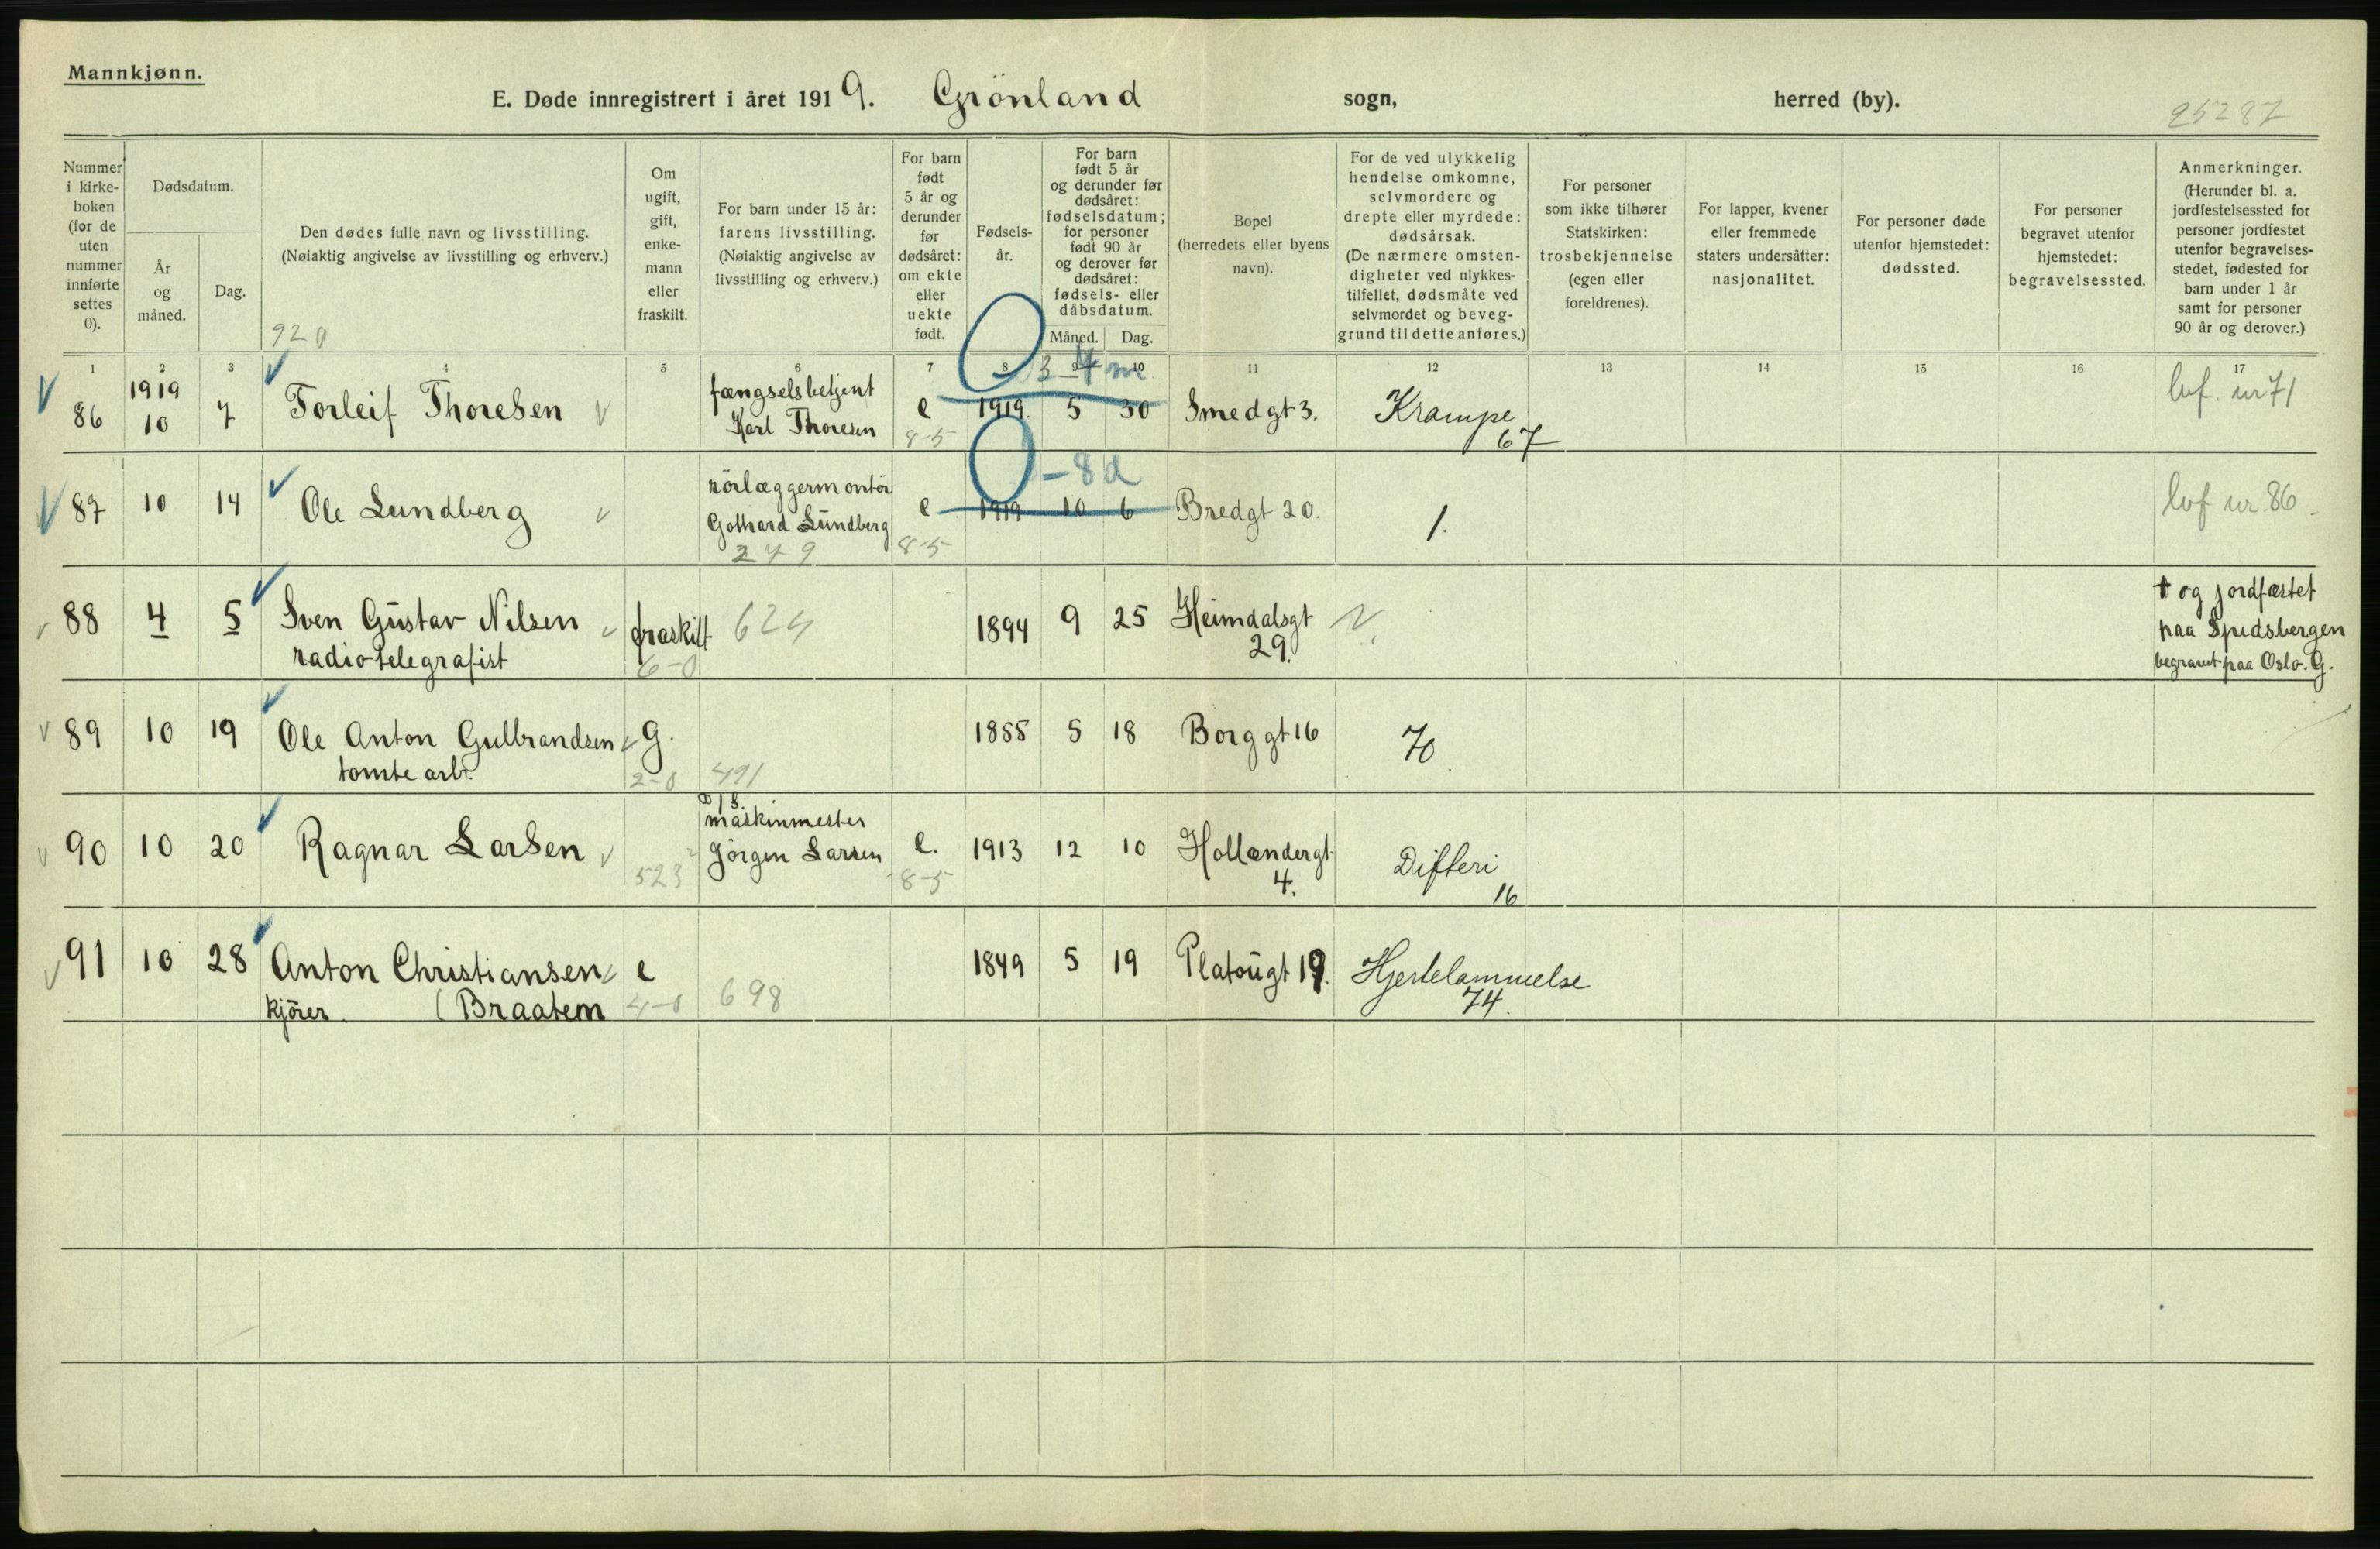 Mannkjønn.
E. Døde innregistrert i året 1919. Grönland sogn, herred (by).
25287
Nummer i kirke-boken (for de uten nummer innførte settes 0).
Dødsdatum.
År og måned.
Dag.
Den dødes fulle navn og livsstilling.
(Nøiaktig angivelse av livsstilling og erhverv.)
920
Om ugift, gift, enke-mann eller fraskilt.
For barn under 15 år: farens livsstilling.
(Nøiaktig angivelse av livsstilling og erhverv.)
For barn født 5 år og derunder før dødsåret: om ekte eller uekte født.
Fødsels-år.
For barn født 5 år og derunder før dødsåret: fødselsdatum; for personer født 90 år og derover før dødsåret: fødsels- eller dåbsdatum.
Måned. Dag.
Bopel (herredets eller byens navn).
For de ved ulykkelig hendelse omkomne, selvmordere og drepte eller myrdede: dødsårsak.
(De nærmere omsten-digheter ved ulykkes-tilfellet, dødsmåte ved selvmordet og beveg-grund til dette anføres.)
For personer som ikke tilhører Statskirken: trosbekjennelse (egen eller foreldrenes).
For lapper, kvener eller fremmede staters undersåtter: nasjonalitet.
For personer døde utenfor hjemstedet: dødssted.
For personer begravet utenfor hjemstedet: begravelsessted.
Anmerkninger.
(Herunder bl. a. jordfestelsessted for personer jordfestet utenfor begravelses-stedet, fødested for barn under 1 år samt for personer 90 år og derover.)
1 2 3 4 5 6 7 8 9 10 11 12 13 14 15 16 17
0 - 3-4 m
86 1919 10 7 Torleif Thoresen fængselsbetjent Karl Thoresen e 8-5 1919. 5 30 Smedgt 3. Krampe 67 lvf. nr 71
0 - 8 d
87 10 14 Ole Lundberg rörlæggermontör Gothard Lundberg 249 e 8-5 1919 10 6 Bredgt 20. 1. lvf nr. 86
88 4 5 Sven Gustav Nilsen radiotelegrafist fraskilt 6-0 624 1894 9 25 Heimdalsgt 29. † og jordfæstet paa Spidsbergen begravet paa Oslo. G.
89 10 19 Ole Anton Gulbrandsen tomtearb. g. 2-0 491 1855 5 18 Borggt 16 70
90 10 20 Ragnar Larsen 523 D/S. maskinmester Jörgen Larsen e. 8-5 1913 12 10 Hollændergt 4. Difteri 16
91 10 28 Anton Christiansen kjörer. (Braatem e 4-0 698 1849 5 19 Platougt 19. Hjertelammelse 74.